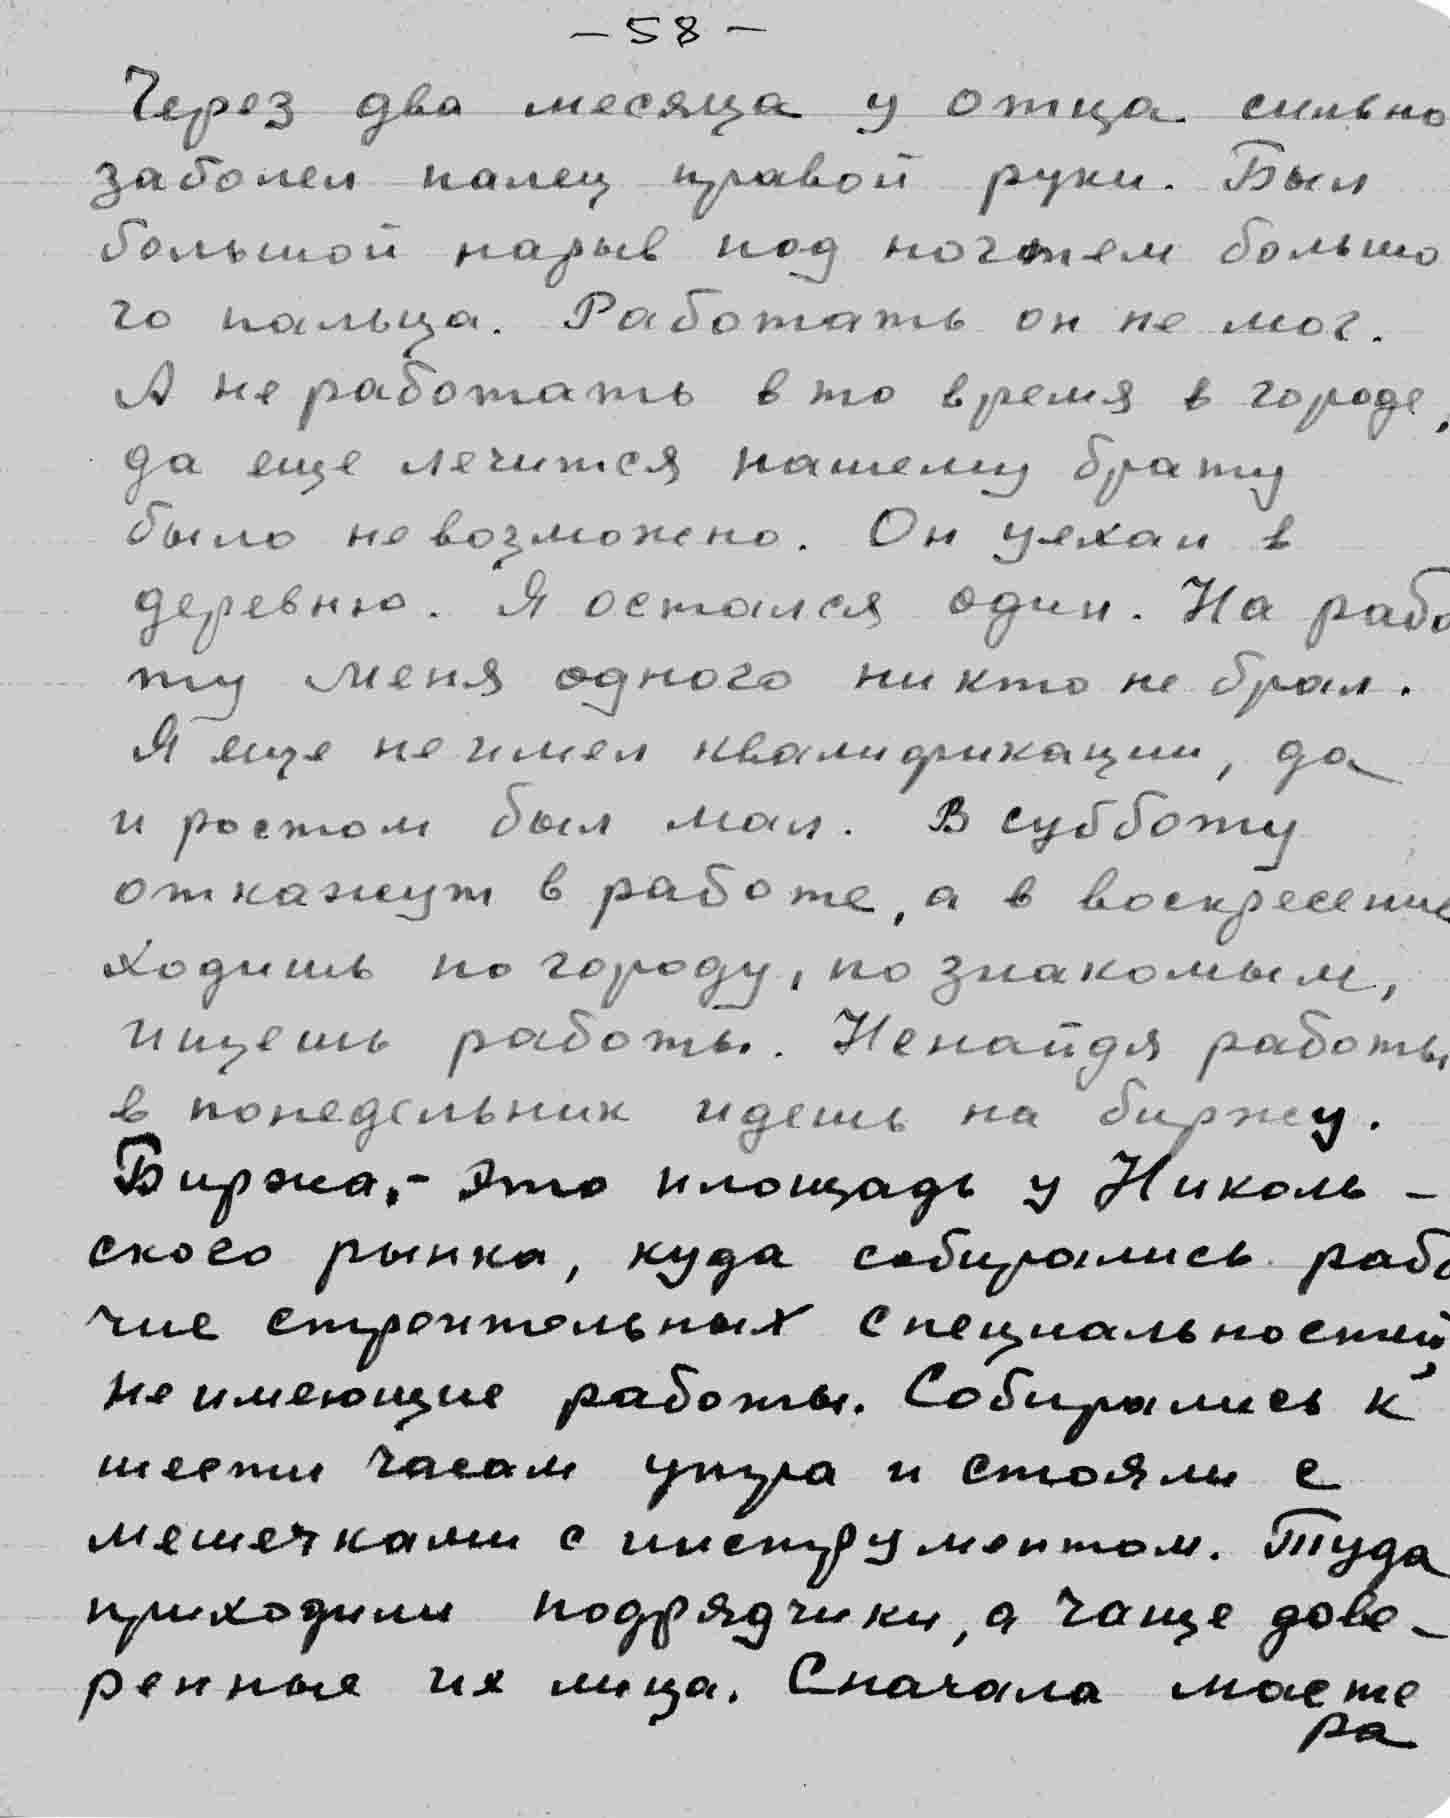 – 58 –
Через два месяца у отца сильно
заболел палец правой руки. Был
большой нарыв под ногтем большо
го пальца. Работать он не мог.
А не работать в то время в городе,
да еще лечится нашему брату
было невозможно. Он уехал в
деревню. Я остался один. На рабо
ту меня одного никто не брал.
Я еще не имел квалификации, да
и ростом был мал. В субботу
откажут в работе, а в воскресение
ходишь по городу, по знакомым,
ищешь работы. Ненайдя работы
в понедельник идешь на биржу.
Биржа,- это площадь у Николь –
ского рынка, куда собирались рабо
чие строительных специальностей,
не имеющие работы. Собирались к
шести часам утра и стояли с
мешечками с инструментом. Туда
приходили подрядчики, а чаще дове –
ренные их лица. Сначала масте
ра